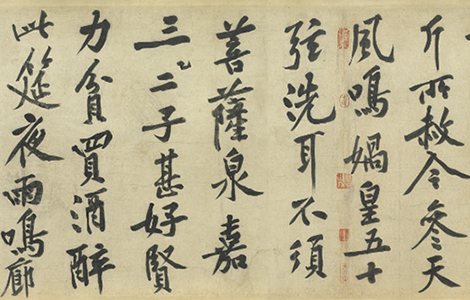 斤所赦今參天
風鳴媧皇五十
弦洗耳不須
菩薩泉嘉
三二子甚好賢
力貧買酒醉
此筵夜雨鳴廊